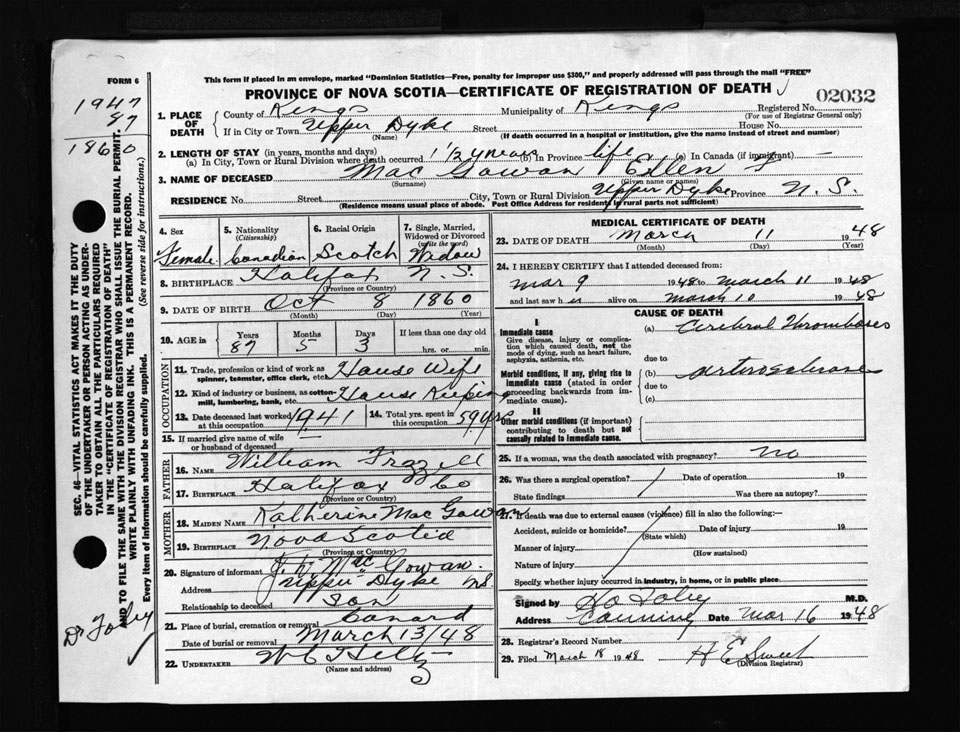 This form if placed in an envelope, marked "Dominion Statistics—Free, penalty for improper use $300," and properly addressed will pass through the mail "FREE"
FORM 6
PROVINCE OF NOVA SCOTIA—CERTIFICATE OF REGISTRATION OF DEATH
02032
1947
87
1860
1. PLACE OF DEATH
County of Kings Municipality of Kings Registered No.
(For use of Registrar General only)
If in City or Town Upper Dyke Street House No.
(Name) (If death occurred in a hospital or institution, give the name instead of street and number)
2. LENGTH OF STAY (in years, months and days)
(a) In City, Town or Rural Division where death occurred 1 1/2 years (b) In Province life (c) In Canada (if immigrant) —
3. NAME OF DECEASED Mac Gowan Ellen
(Surname) (Given name or names)
RESIDENCE No. Street City, Town or Rural Division Upper Dyke Province N. S.
(Residence means usual place of abode. Post Office Address for residents in rural parts not sufficient)
4. Sex Female
5. Nationality (Citizenship) Canadian
6. Racial Origin Scotch
7. Single, Married, Widowed or Divorced (write the word) Widow
8. BIRTHPLACE Halifax N. S.
(Province or Country)
9. DATE OF BIRTH Oct 8 1860
(Month) (Day) (Year)
10. AGE in Years Months Days If less than one day old
87 5 3 hrs. or min.
OCCUPATION
11. Trade, profession or kind of work as spinner, teamster, office clerk, etc. House Wife
12. Kind of industry or business, as cotton-mill, lumbering, bank, etc. House Keeping
13. Date deceased last worked at this occupation 1941
14. Total yrs. spent in this occupation 59 yrs
15. If married give name of wife or husband of deceased —
FATHER
16. NAME William Frazell
17. BIRTHPLACE Halifax Co
(Province or Country)
MOTHER
18. MAIDEN NAME Katherine Mac Gowan
19. BIRTHPLACE Nova Scotia
(Province or Country)
20. Signature of informant Mac Gowan
Address Upper Dyke NS
Relationship to deceased Son
21. Place of burial, cremation or removal Canard
Date of burial or removal March 13/48
22. UNDERTAKER
(Name and address)
MEDICAL CERTIFICATE OF DEATH
23. DATE OF DEATH March 11 1948
(Month) (Day) (Year)
24. I HEREBY CERTIFY that I attended deceased from:
Mar 9 1948 to March 11 1948
and last saw her alive on March 10 1948
CAUSE OF DEATH
I
Immediate cause
Give disease, injury or complication which caused death, not the mode of dying, such as heart failure, asphyxia, asthenia, etc.
(a) Cerebral Thromboses
due to
Morbid conditions, if any, giving rise to immediate cause (stated in order proceeding backwards from immediate cause).
(b)
due to
(c)
II
Other morbid conditions (if important) contributing to death but not causally related to immediate cause.
25. If a woman, was the death associated with pregnancy? No
26. Was there a surgical operation? Date of operation 19
State findings Was there an autopsy?
27. If death was due to external causes (violence) fill in also the following:—
Accident, suicide or homicide? Date of injury 19
(State which)
Manner of injury
(How sustained)
Nature of injury
Specify whether injury occurred in industry, in home, or in public place
Signed by Foley M.D.
Address Canning Date Mar 16 1948
28. Registrar's Record Number
29. Filed March 18 1948 H E Sweet
(Division Registrar)
SEC. 46—VITAL STATISTICS ACT MAKES IT THE DUTY
OF THE UNDERTAKER OR PERSON ACTING AS UNDER-
TAKER TO OBTAIN ALL THE PARTICULARS REQUIRED
IN THE "CERTIFICATE OF REGISTRATION OF DEATH"
AND TO FILE THE SAME WITH THE DIVISION REGISTRAR WHO SHALL ISSUE THE BURIAL PERMIT.
WRITE PLAINLY WITH UNFADING INK. THIS IS A PERMANENT RECORD.
Every item of Information should be carefully supplied. (See reverse side for instructions.)
Dr Foley